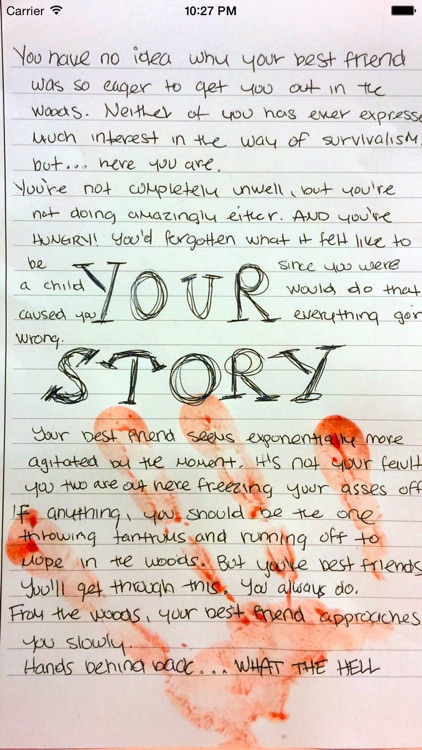 Carrier 10:27 PM
You have no idea why your best friend
was so eager to get you out in the
woods. Neither of you has ever expresse
much interest in the way of survivalism,
but... here you are.
You're not completely unwell, but you're
not doing amazingly either. AND you're
HUNGRY! You'd forgotten what it felt like to
be YOUR since you were
a child would do that
caused you everything goin
wrong.
STORY
Your best friend seems exponentially more
agitated by the moment. It's not your fault
you two are out here freezing your asses off
If anything, you should be the one
throwing tantrums and running off to
mope in the woods. But you're best friends
You'll get through this. You always do.
From the woods, your best friend approaches
you slowly.
Hands behind back... WHAT THE HELL